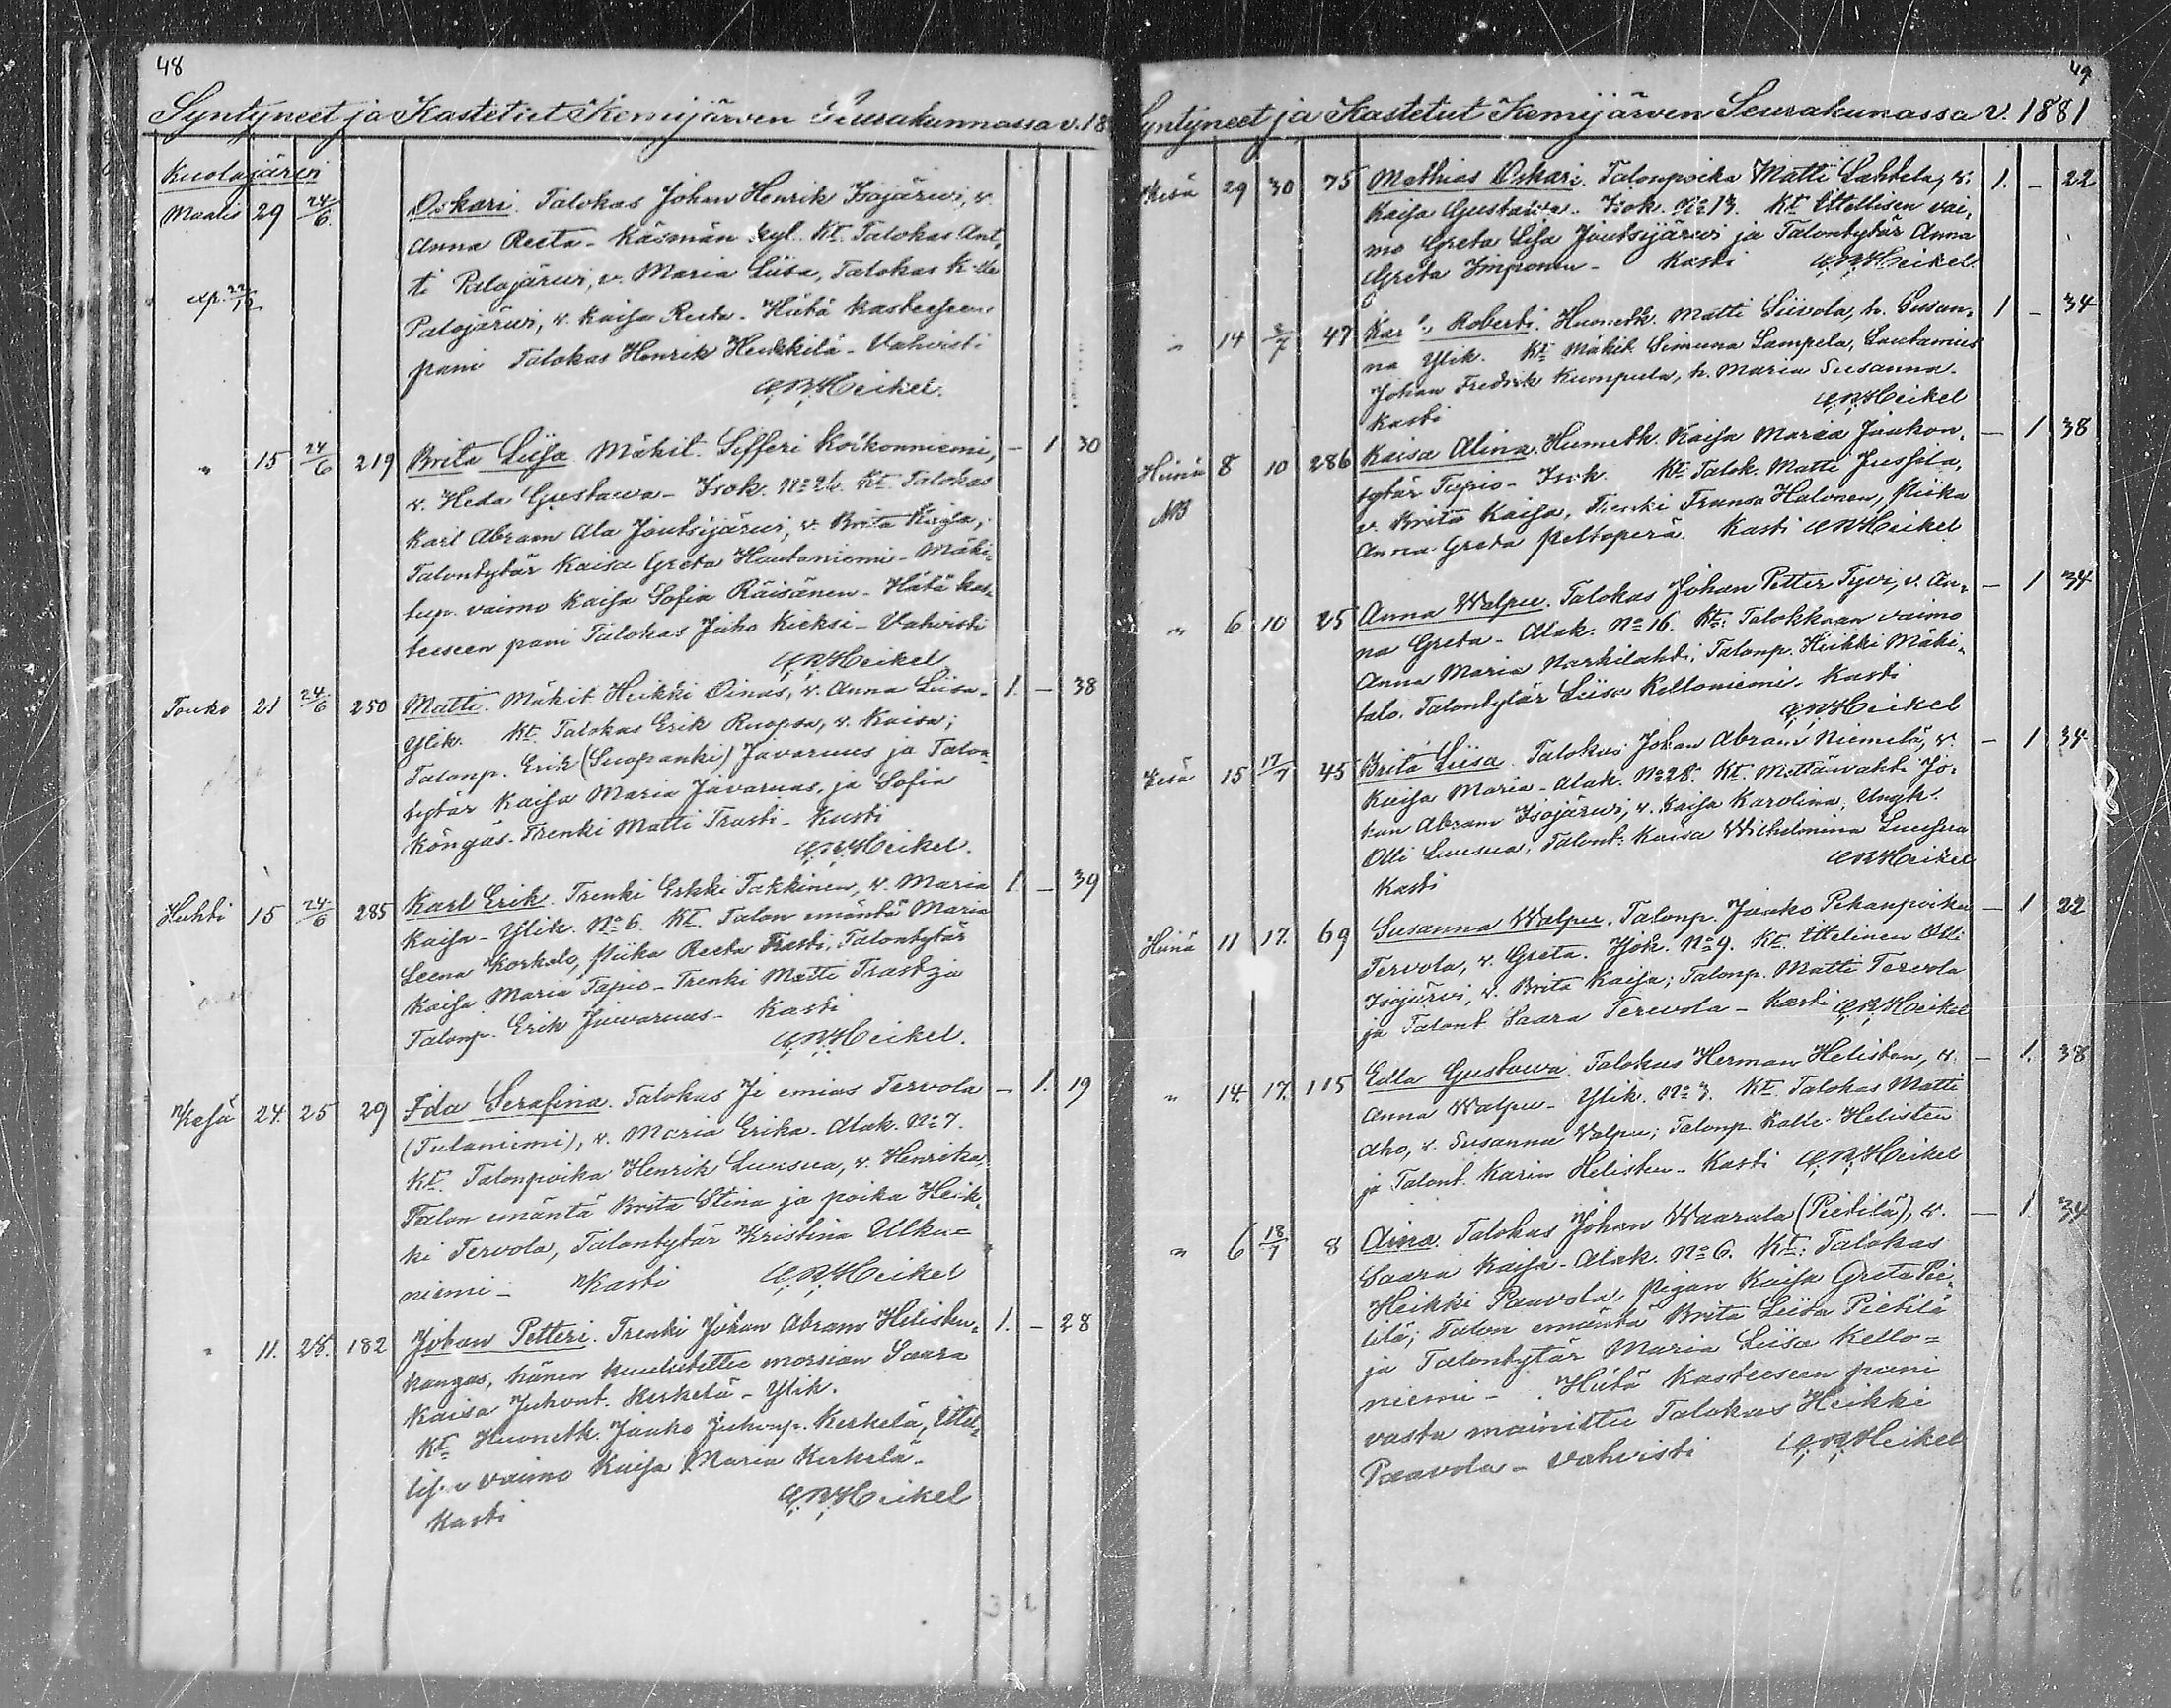 48
Syntyneet ja Kastetut Kemijärven Seurakunnassa v. 18
Kuolajärvi
Maalis 29 24/6 Oskari. Talokas Johan Henrik Isojärwi, v.
Anna Reeta - Käsmän kyl. Kt. Talokas Ant-
ti Palojärwi, v. Maria Liisa, Talokas
exp. Palojärwi, v. Kaisa Reeta. Hätä kasteeseen
pani Talokas Henrik Heikkilä - Vahvisti
Heikel.
" 15 24/6 219 Brita Liisa Mäkit. Sefferi Koikonniemi, - 1 30
v. Heda Gustawa - Isok. No 26. Kt. Talokas
Karl Abram Ala Joutsijärwi, v. Brita Kaisa,
Talontytär Kaisa Greta Hautaniemi - Mäki-
tup. vaimo Kaisa Sofia Räisänen - Hätä kas-
teeseen pani Talokas Juho Kieksi - Vahvisti
Heikel
Touko 21 24/6 250 Matti. Mäkit. Heikki Oinas, v. Anna Liisa - 1. - 38
Ylik. Kt. Talokas Erik Ruopsa, v. Kaisa;
Talonp. Erik (Suopanki) Javaruus ja Talon-
tytär Kaisa Maria Javaruus, ja Sofia
Köngäs. Trenki Matti Trasti - Kasti
Heikel.
Huhti 15 24/6 285 Karl Erik. Trenki Erkki Takkinen, v. Maria 1 - 39
Kaisa - Ylik. No 6. Kt. Talon emäntä Maria
Leena Korkalo, Piika Reeta Trasti, Talontytär
Kaisa Maria Tapio - Trenki Matti Trasti ja
Talonp. Erik Juwaruus - Kasti
Heikel.
Kesä 24. 25 29 Ida Serafina. Talokas Je emias Tervola - 1. 19
(Tulaniemi), v. Maria Erika. Alak. No 7.
Kt. Talonpoika Henrik Luusua, v. Henrika,
Talon emäntä Brita Stina ja poika Heik-
ki Tervola, Talontytär Kristina Ulku-
niemi - Kasti Heikel
" 11. 25. 182 Johan Petteri. Trenki Johan Abram Helisten- 1. - 28
kangas, hänen kuulutettu morsian Saara
Kaisa Juhont. Kerkelä - Ylik.
Kt. Huonetk. Jaako Juhonp. Kerkelä, Ittel-
lisen vaimo Kaisa Maria Kerkelä -
Kasti Heikel
49
Syntyneet ja Kastetut Kemijärven Seurakunassa v. 1881
Kesä 29 30 75 Mathias Oskari. Talonpoika Matti Lahtela, v. 1. - 22
Kaisa Gustawa - Isok. No 13. Kt. Ittellisen vai-
mo Greta Lisa Joutsijärwi ja Talontytär Anna
Greta Imponen - Kasti Heikel
" 14 2/7 47 Kar Roberti. Huonetk. Matti Siivola, h. Susan- 1 - 34
na Ylik. Kt. Mäkit. Simuna Lampela, Lautamies
Johan Fredrik Kumpula, h. Maria Susanna.
Kasti Heikel
Heinä 8 10 286 Kaisa Alina. Huonetk. Kaisa Maria Jaakon- - 1 38
tytär Tapio - Isok. Kt. Talok. Matti Jussila,
NB v. Brita Kaisa, Trenki Fransa Halonen, Piika
Anna Greta Peltoperä. Kasti Heikel
" 6. 10 25 Anna Walpu. Talokas Johan Petter Tyvi, v. An- - 1 34
na Greta - Alak. No 16. Kt. Talokkaan vaimo
Anna Maria Narkilahti, Talonp. Heikki Mäki-
talo, Talontytär Liisa Kelloniemi - Kasti
Heikel
Kesä 15 17/7 45 Brita Liisa. Talokas Johan Abram Niemelä, v. - 1 34
Kaisa Maria - Alak. No 28. Kt. Mettänvahti Jo-
han Abram Isojärwi, v. Kaisa Karolina, Ungk.
Olli Luusua, Talont. Kaisa Wilhelmina Luusua
Kasti Heikel
Heinä 11 17. 69 Susanna Walpu. Talonp. Jaako Pekanpoika - 1 22
Tervola, v. Greta. Isok. No 9. Kt. Ittelinen Olli
Isojärwi, v. Brita Kaisa; Talonp. Matti Tervola
ja Talont. Saara Terevola - Kasti Heikel
" 14. 17. 115 Edla Gustawa. Talokas Herman Helisten, v. - 1. 38
Anna Walpu - Ylik. No 3. Kt. Talokas Matti
Aho, v. Susanna Valpu; Talonp. Kalle Helisten
ja Talont. Karin Helisten - Kasti Heikel
" 6 18/7 8 Aina. Talokas Johan Waarala (Pietilä), v. - 1 34
Saara Kaisa - Alak. No 6. Kt: Talokas
Heikki Paavola, Pigan Kaisa Greta Pie-
tilä; Talon emäntä Brita Liisa Pietilä
ja Talontytär Maria Liisa Kello-
niemi - Hätä Kasteeseen pani
vasta mainittu Talokas Heikki
Paavola - Vahvisti Heikel